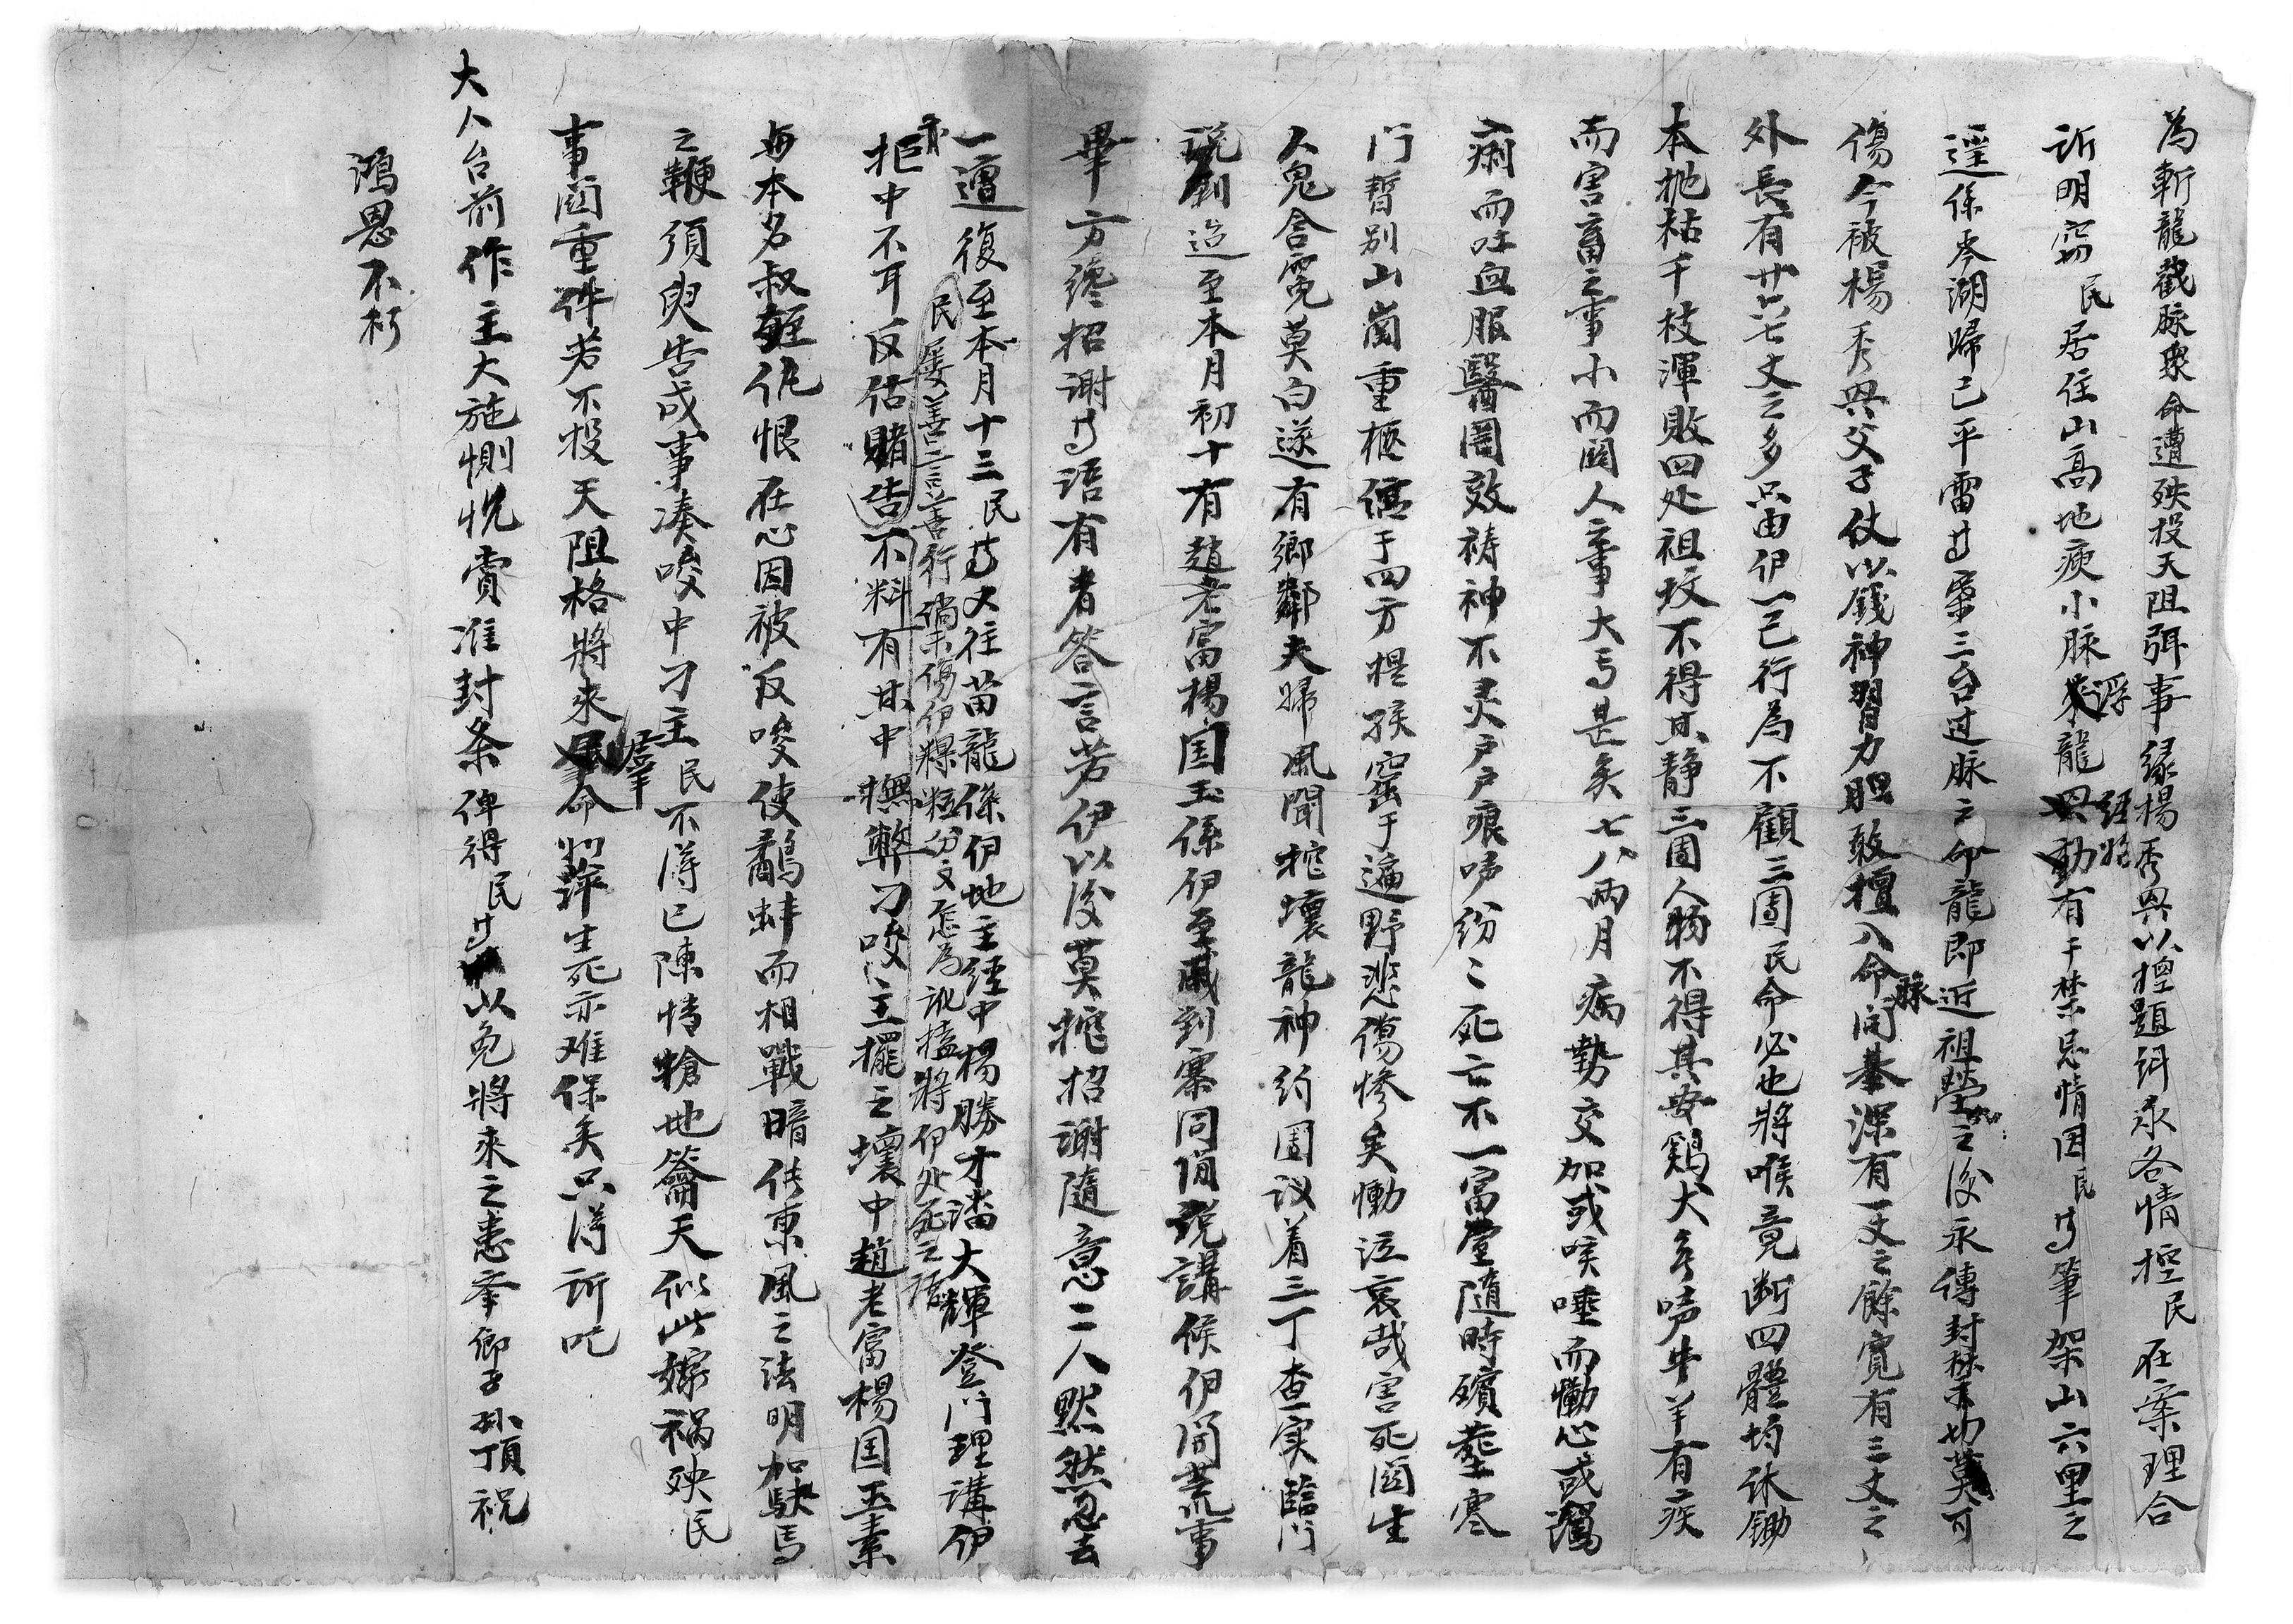 為斬龍截脉衆命遭殃投天阻弭事緣楊秀興以擅題詞承各情控民在案理合
訴明窃民居住山高地疲小脉浮龍經始動有干禁忌情因民等筆架山六里之
遥係岑湖歸已平雷等寨三台过脉之命龍即近祖塋之後永傳封禁切莫可
傷今被楊秀興父子仗以錢神習力胆敢擅入命脉開基深有一丈之餘寬有三丈之
外長有廿六七丈之多只由伊一己行為不顧三團民命必也將喉竟断四體均休锄
本抛枯千枝渾敗四处祖坟不得其静三團人物不得其安鷄犬多啼牛羊有疾
而害畜之事小而関人之事大焉是矣七八兩月病勢交加或咳唾而慟心或瀉
痢而吐血服醫罔效祷神不灵户户痕啼紛〻死亡不一富堂隨時殯塟寒
門暫别山崗重柩停于四方提孩窑于遍野悲傷慘矣慟泣哀哉害死図生
人鬼含冤莫白遂有鄉鄰夫婦風聞挖壞龍神約團议着三丁查实臨門
說剖迨至本月初十有趙老富楊国玉係伊至戚到寨同伊說講候伊開荒事
畢方纔招谢等语有者答言若伊以後莫挖招谢隨意二人黙然忽去
一遭復至本月十三民等又往苗龍係伊地主經中楊勝才潘大輝登門理講伊
民屡善言善行倘未傷伊粿粒分文怎為訛搕將伊处死之語
亦拒中不耳反估賭告不料有其中撫弊刁唆〻主擺之壞中趙老富楊国玉素
毎本名叔姪仇恨在心因被反唆使鷸蚌而相戰暗使東風之法明加駃馬
之鞭須臾告成事凑唆中刁主民不得已陳情搶地籥天似此嫁祸殃民
事関重件若不投天阻格將來羣命如萍生死亦难保矣只得訴叱
大人台前作主大施惻忱賞准封条俾得民等以免將來之患奉鄉子孙頂祝
鴻恩不朽